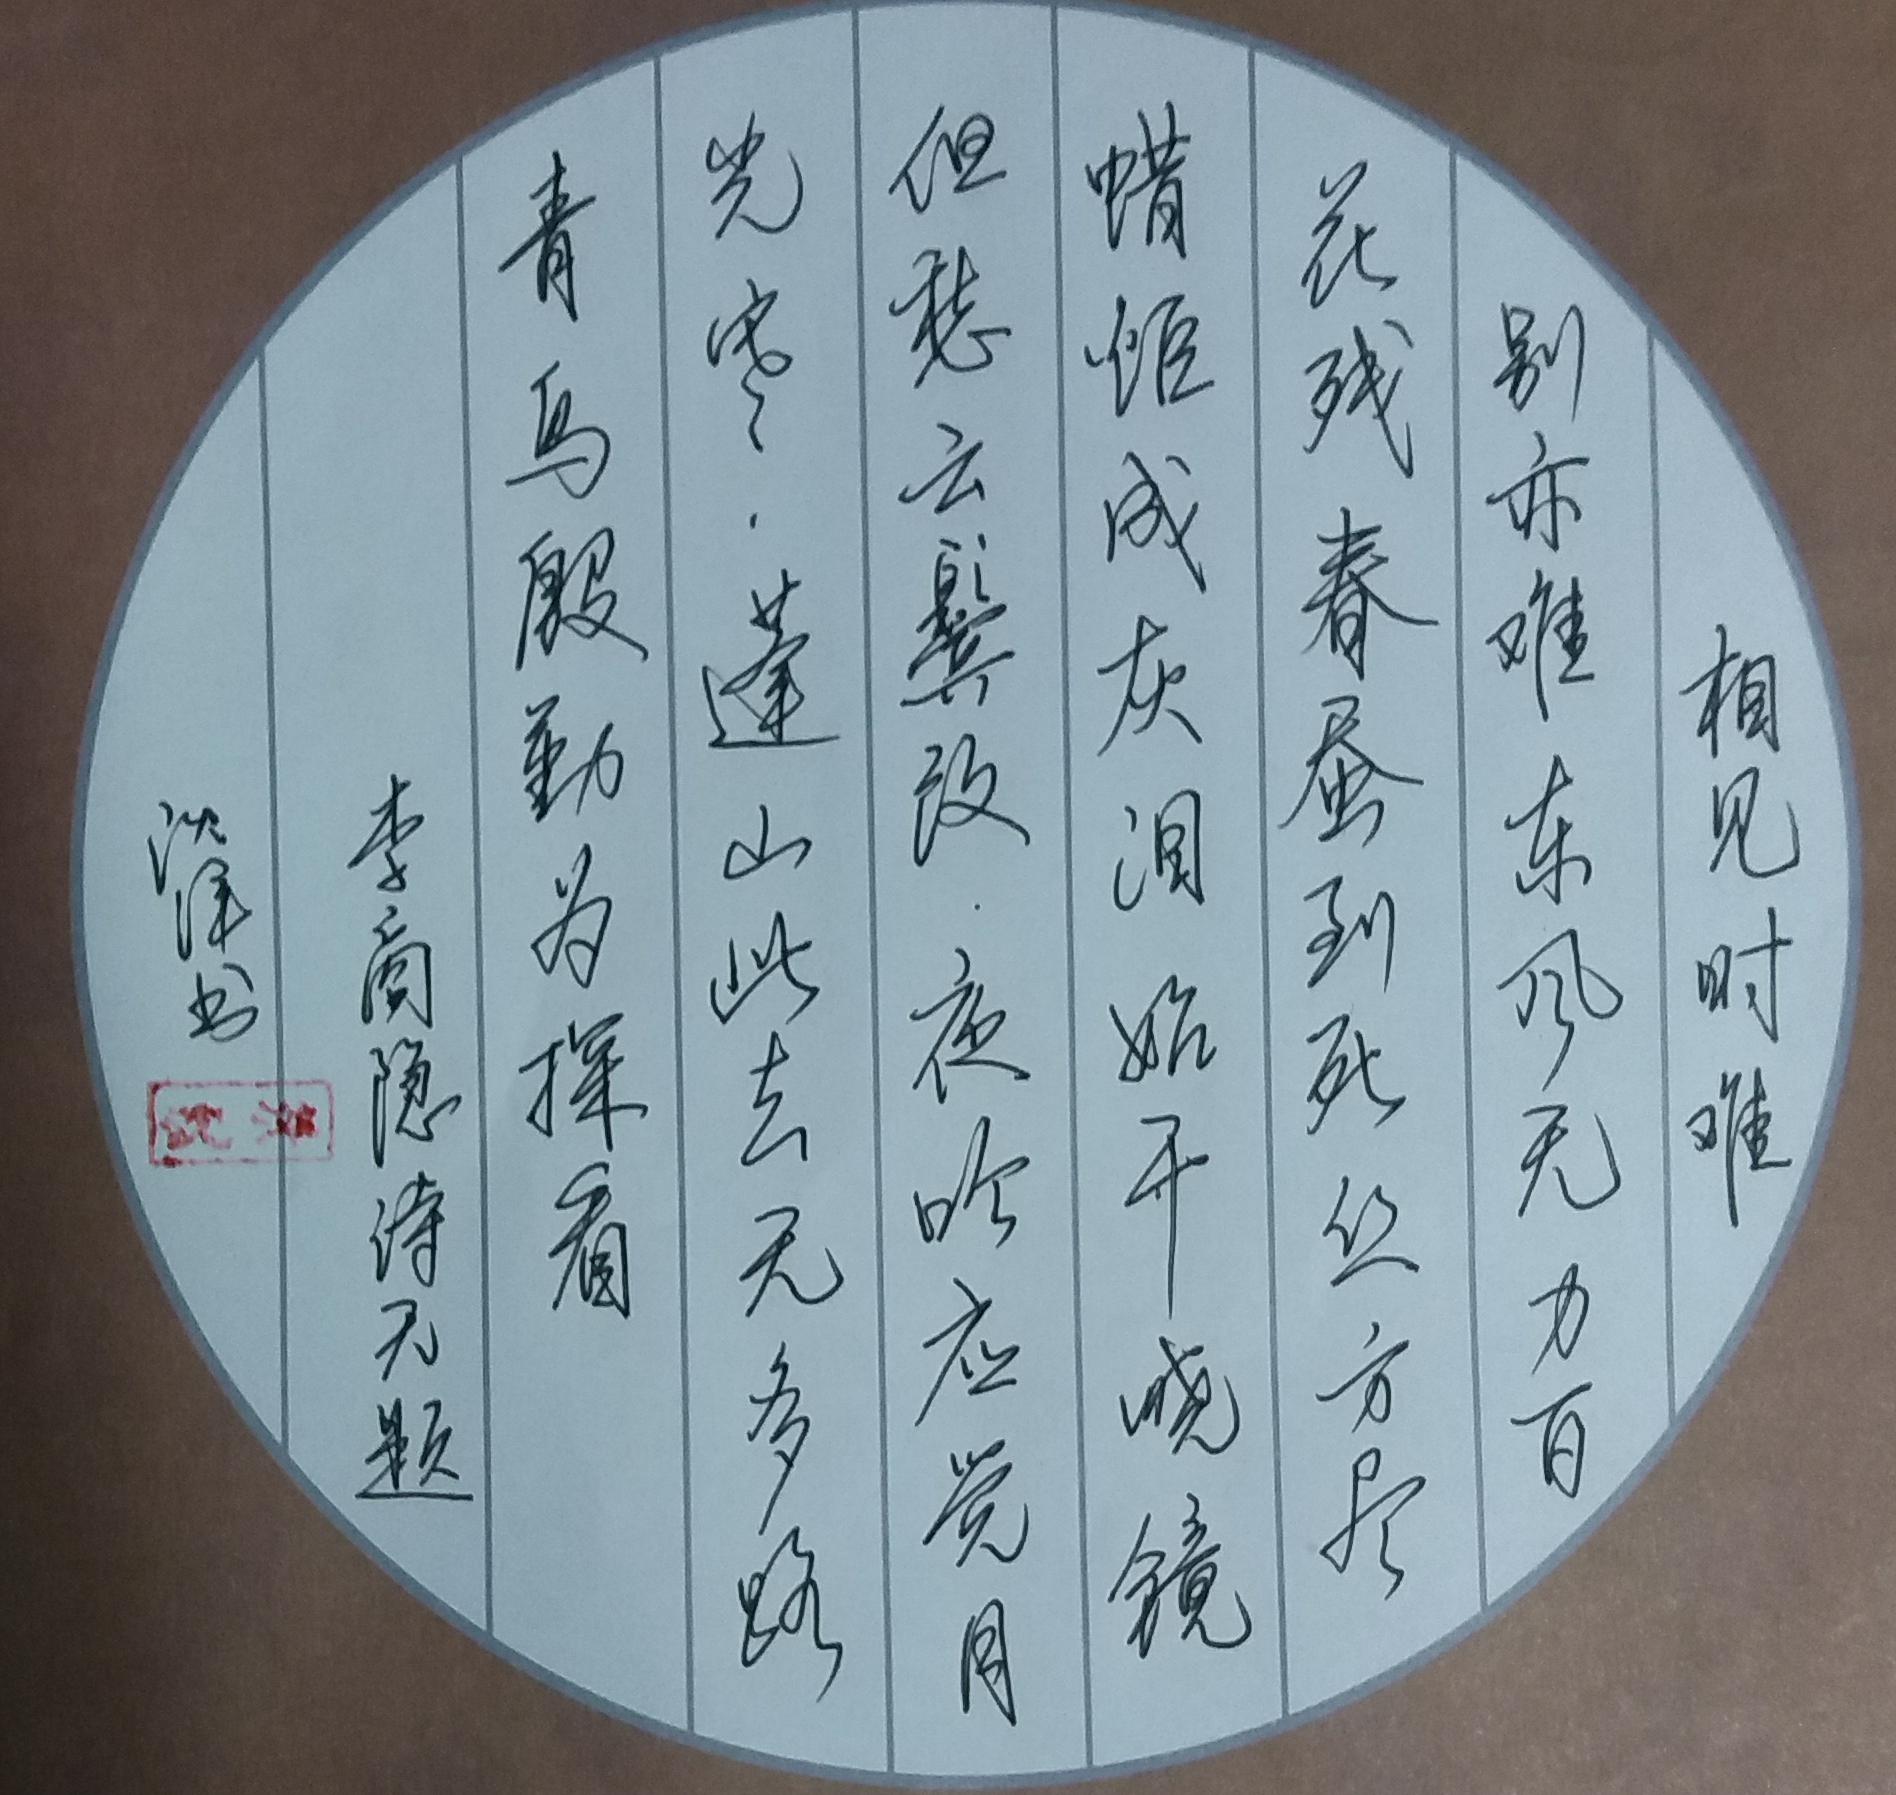 相见时难
别亦难东风无力百
花残春蚕到死丝方尽
蜡炬成灰泪始干晓镜
但愁云鬓改·夜吟应觉月
光寒·蓬山此去无多路
青鸟殷勤为探看
李商隐诗无题
书